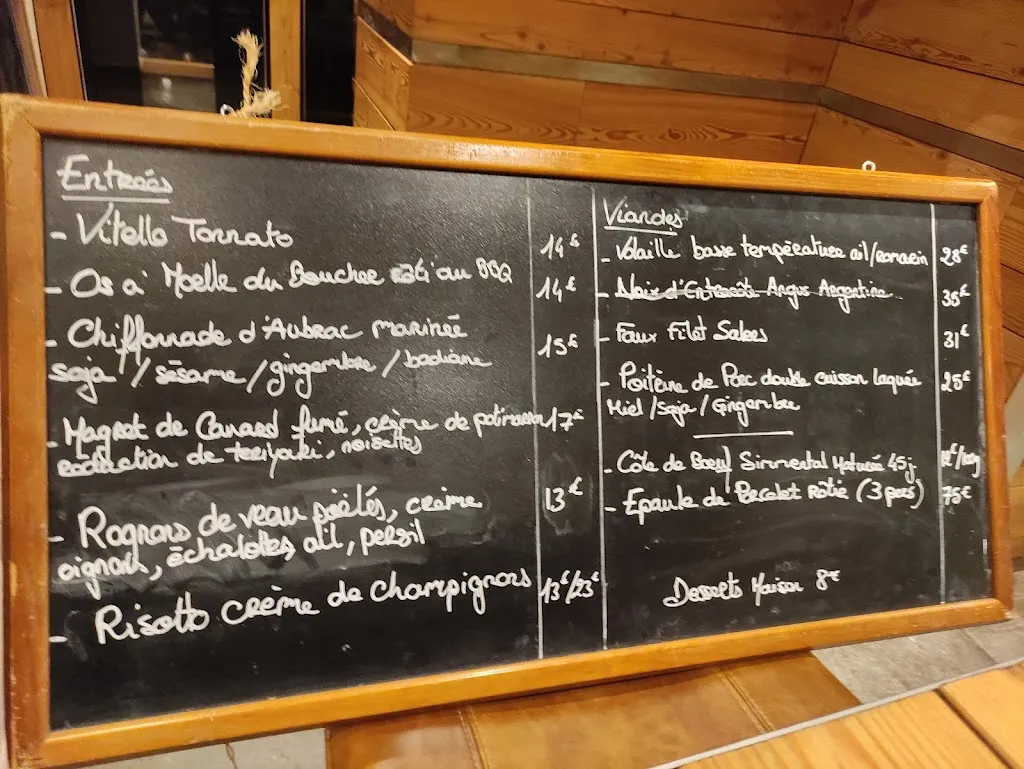 Entrées
- Vitello Tonnato 14€
- Os à Moelle du Boucher au BBQ 14€
- Chiffonnade d'Aubrac marinée 15€
soja / sésame / gingembre / badiane
- Magret de Canard fumé, crème de potimarron 17€
réduction de teriyaki, noisettes
- Rognons de veau poêlés, crème 13€
oignons, échalotes, ail, persil
- Risotto crème de champignons 13€/23€
Viandes
- Volaille basse température ail/romarin 28€
- Noix d'Entrecôte Angus Argentine 35€
- Faux Filet Salers 31€
- Poitrine de Porc double cuisson laquée 25€
Miel / Soja / Gingembre
- Côte de Boeuf Simmental Maturée 45j
- Epaule de Porcelet Rôtie (3 pers) 75€
Desserts Maison 8€